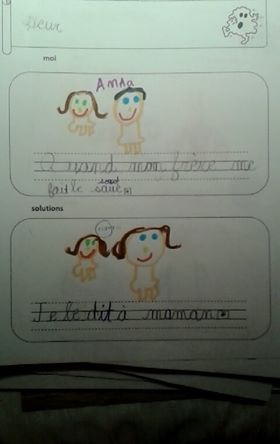 peur
moi
AnnA
Quand mon frère me
fait le
solutions
Je le dit à maman.